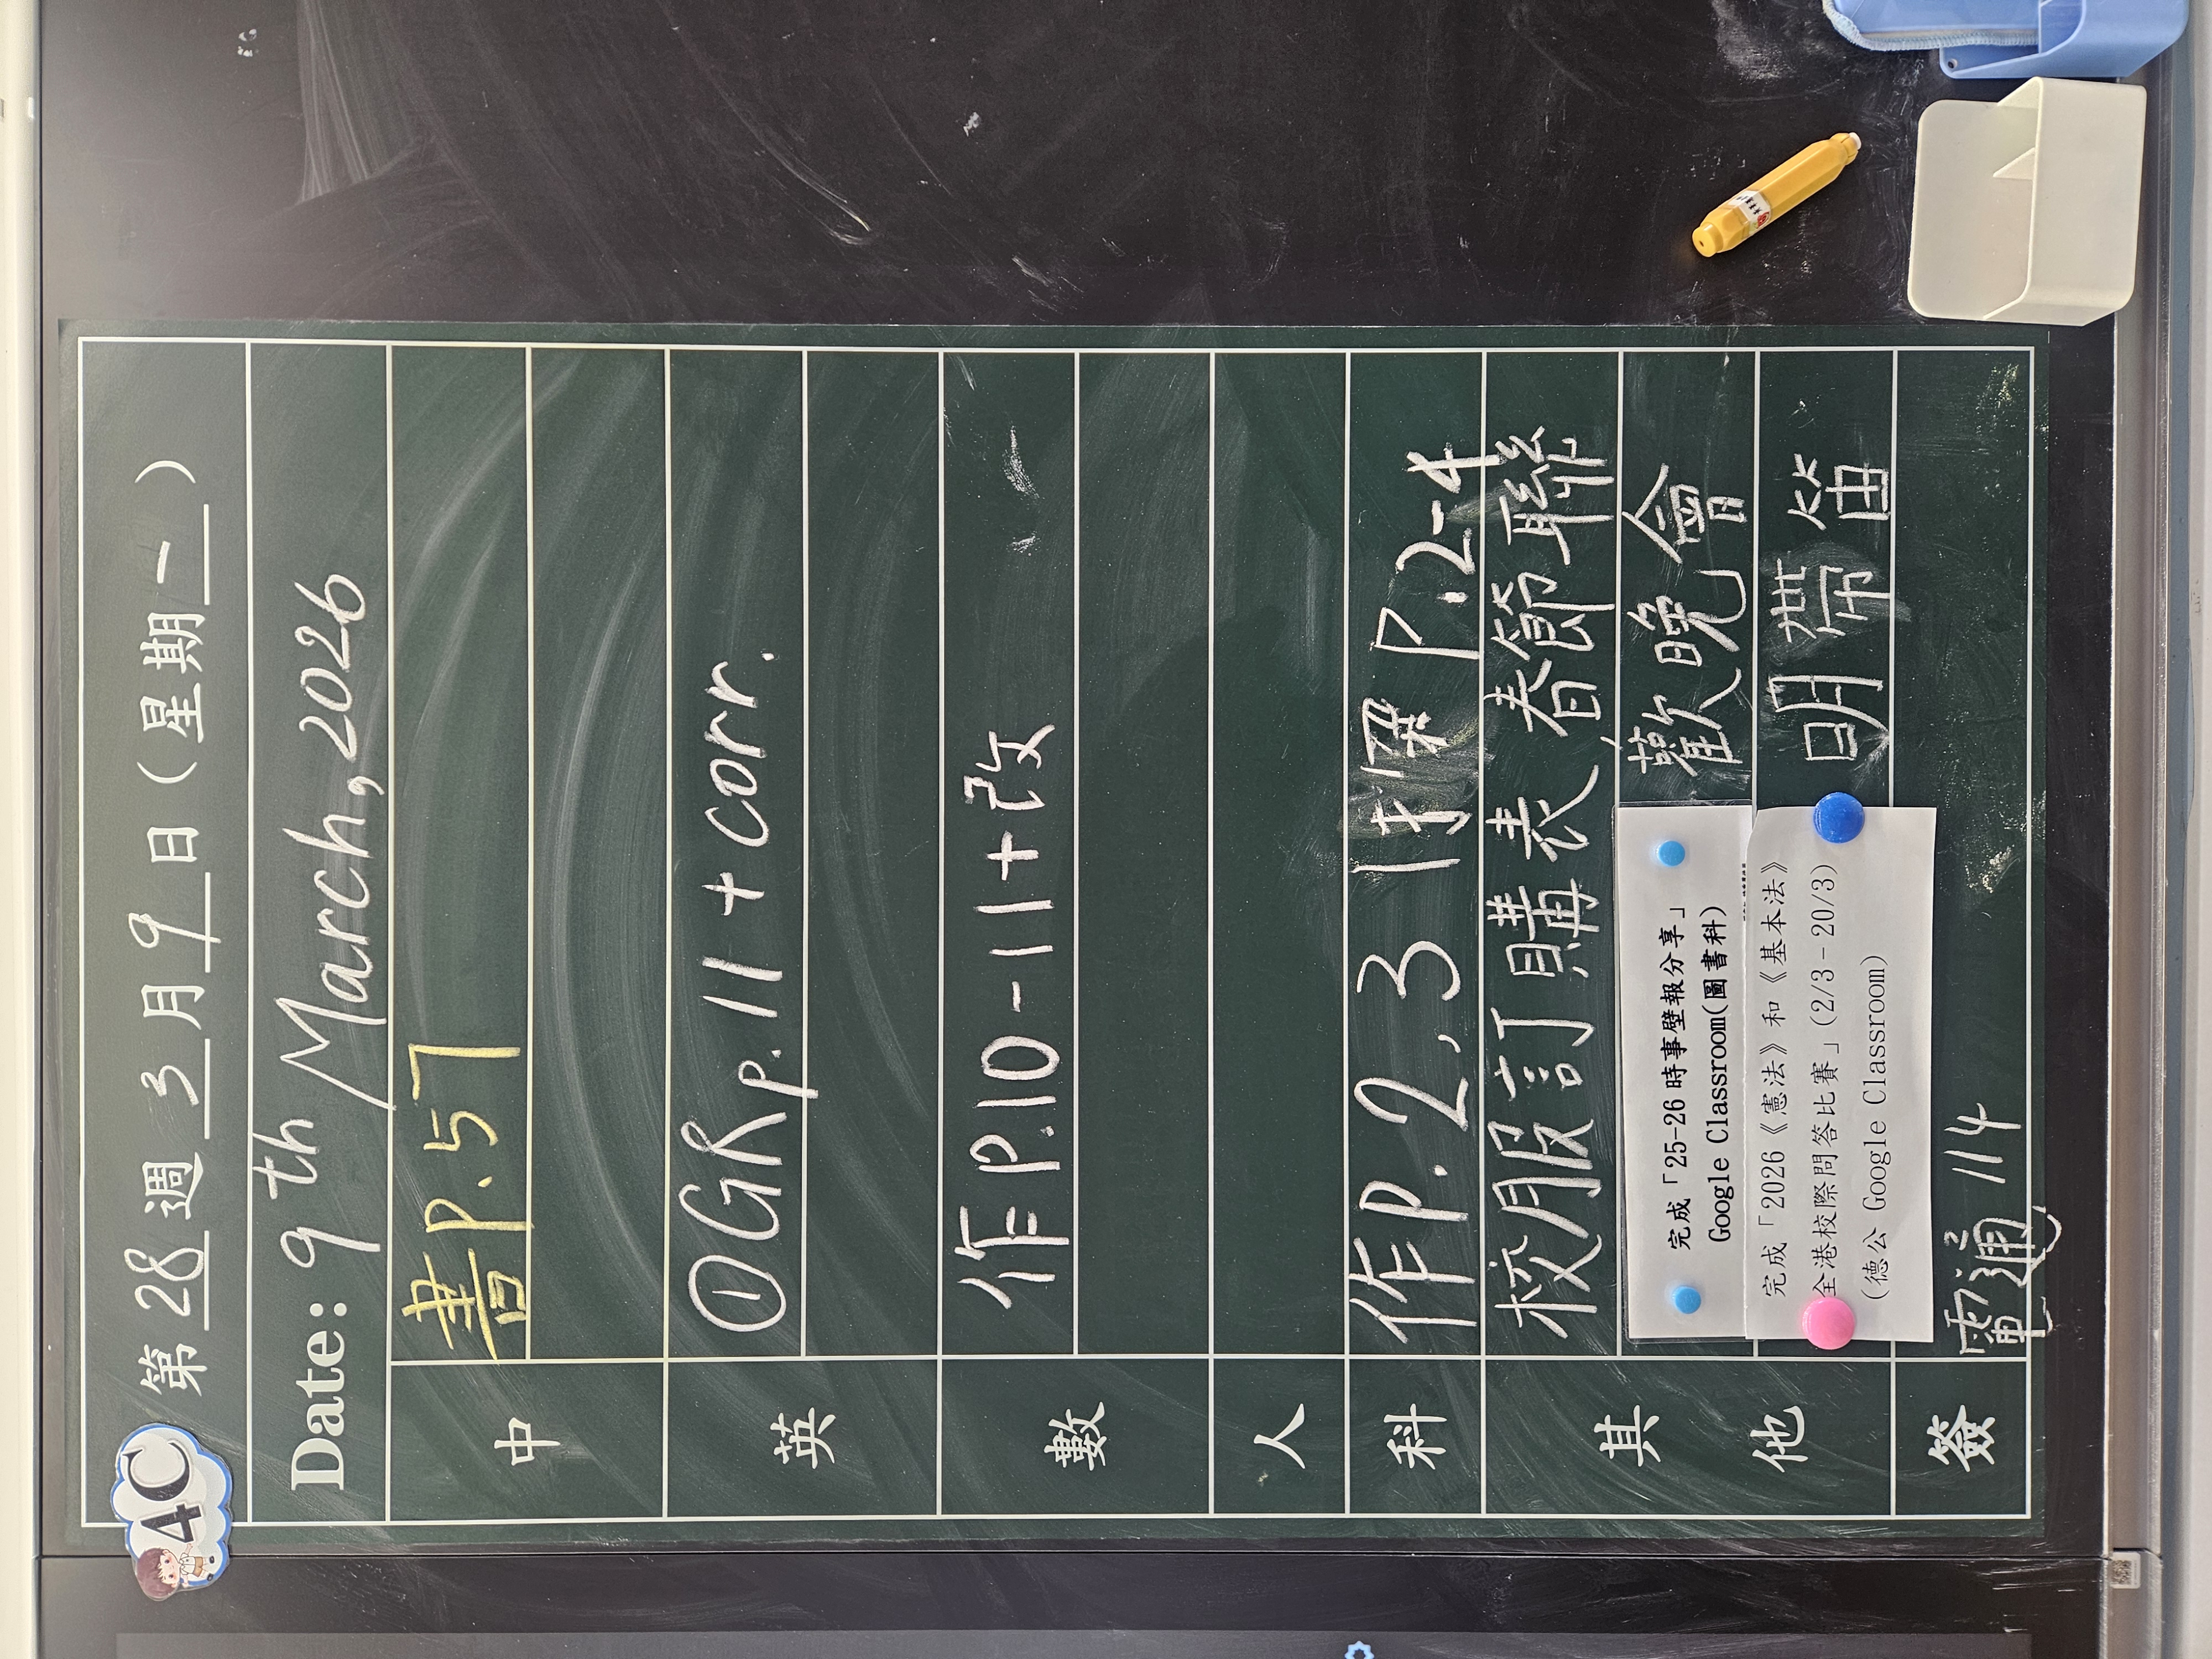 4C 第 28 週 3 月 9 日 ( 星期 一 )
Date: 9th March, 2026
中 書P.57
英 ①GRp.11 + corr.
數 作 P.10-11+改
人
科 作P.2,3 課 P.2-4
其他 校服訂購表 春節聯
歡晚會
明帶笛
完成「25-26 時事壁報分享」
Google Classroom(圖書科)
完成「2026《憲法》和《基本法》
全港校際問答比賽」(2/3-20/3)
(德公 Google Classroom)
簽 電通 114